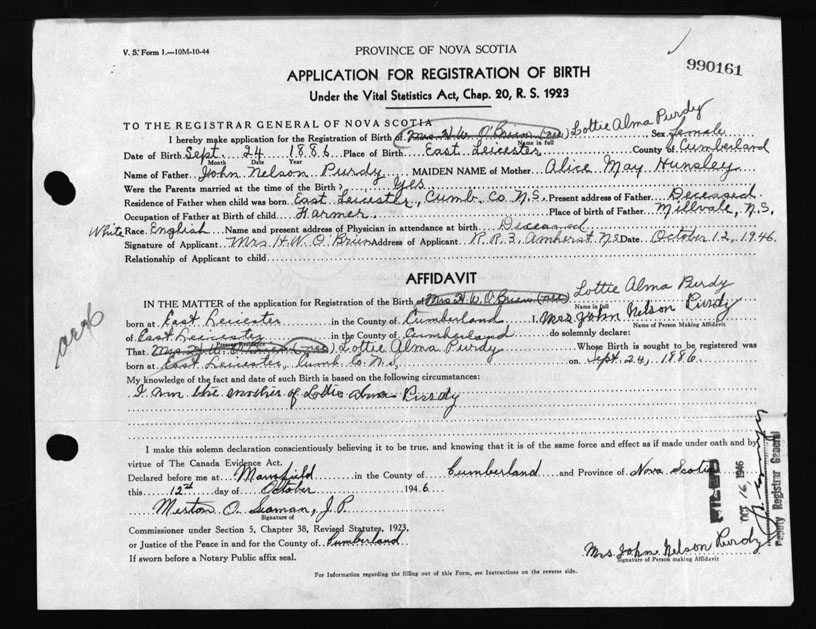 V. S. Form 1.—10M-10-44
PROVINCE OF NOVA SCOTIA
990161
APPLICATION FOR REGISTRATION OF BIRTH
Under the Vital Statistics Act, Chap. 20, R. S. 1923
TO THE REGISTRAR GENERAL OF NOVA SCOTIA
I hereby make application for the Registration of Birth of Mrs H. W. O'Brien (nee) Lottie Alma Purdy Sex female
Name in full
Date of Birth Sept. 24 1886 Place of Birth East Leicester County of Cumberland
Month Date Year
Name of Father John Nelson Purdy MAIDEN NAME of Mother Alice May Hunsley
Were the Parents married at the time of the Birth? Yes
Residence of Father when child was born East Leicester, Cumb. Co N.S. Present address of Father Deceased
Occupation of Father at Birth of child Farmer Place of birth of Father Millvale, N.S.
White Race English Name and present address of Physician in attendance at birth Deceased
Signature of Applicant Mrs H. W. O'Brien Address of Applicant R.R.3, Amherst NS Date October 12, 1946.
Relationship of Applicant to child
AFFIDAVIT
IN THE MATTER of the application for Registration of the Birth of Mrs H. W. O'Brien (nee) Lottie Alma Purdy
Name in full
born at East Leicester in the County of Cumberland I, Mrs John Nelson Purdy
Name of Person Making Affidavit
of East Leicester in the County of Cumberland do solemnly declare:
That Mrs H. W. O'Brien (nee) Lottie Alma Purdy Whose Birth is sought to be registered was
born at East Leicester, Cumb. Co N.S. on Sept. 24, 1886.
My knowledge of the fact and date of such Birth is based on the following circumstances:
I am the mother of Lottie Alma Purdy
I make this solemn declaration conscientiously believing it to be true, and knowing that it is of the same force and effect as if made under oath and by
virtue of The Canada Evidence Act.
Declared before me at Mansfield in the County of Cumberland and Province of Nova Scotia
this 12th day of October 1946
Signature of
Commissioner under Section 5, Chapter 38, Revised Statutes, 1923,
or Justice of the Peace in and for the County of Cumberland
If sworn before a Notary Public affix seal.
Mrs. John Nelson Purdy
Signature of Person making Affidavit
For Information regarding the filling out of this Form, see Instructions on the reverse side.
FILED
OCT 16 1946
Deputy Registrar General